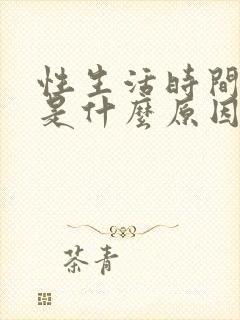 性生活時間
是什麼原因
茶青